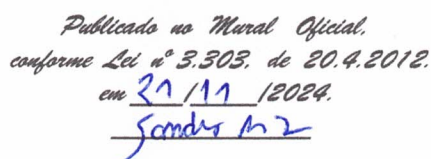 Publicado no Mural Oficial,
conforme Lei nº 3.303, de 20.4.2012.
em 21/11/2024.